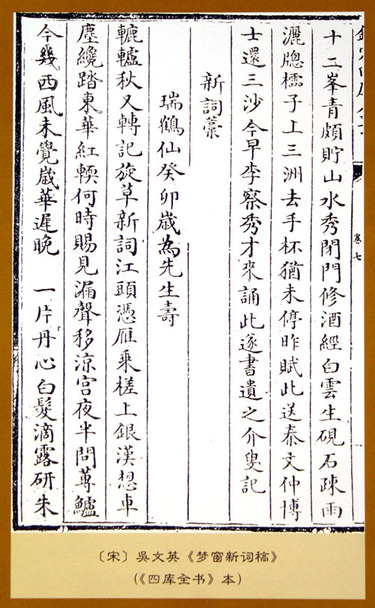 卷七
十二峯青頗貯山水秀閉門修酒經白雲生硯石疎雨
灑牎檽子上三洲去手杯猶未停昨賦此送泰文仲博
士還三沙今早李察秀才來誦此遂書遺之介叟記
新詞藳
瑞鶴仙癸卯歲為先生壽
轆轤秋又轉記旋草新詞江頭憑雁乘槎上銀漢想車
塵纔踏東華紅輭何時賜見漏聲移涼宮夜半問蓴鱸
今幾西風未覺歲華遲晚　一片丹心白髮滴露研朱
〔宋〕吳文英《梦窗新词稿》
(《四库全书》本)